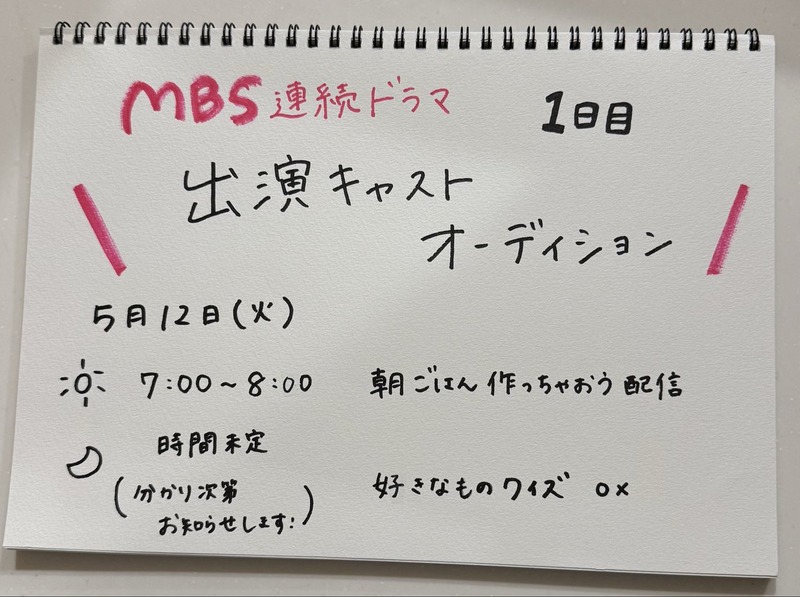 MBS 連続ドラマ 1日目
出演キャスト
オーディション
5月12日(火)
7:00~8:00 朝ごはん作っちゃおう配信
時間未定
(分かり次第
お知らせします!)
好きなものクイズ ○×